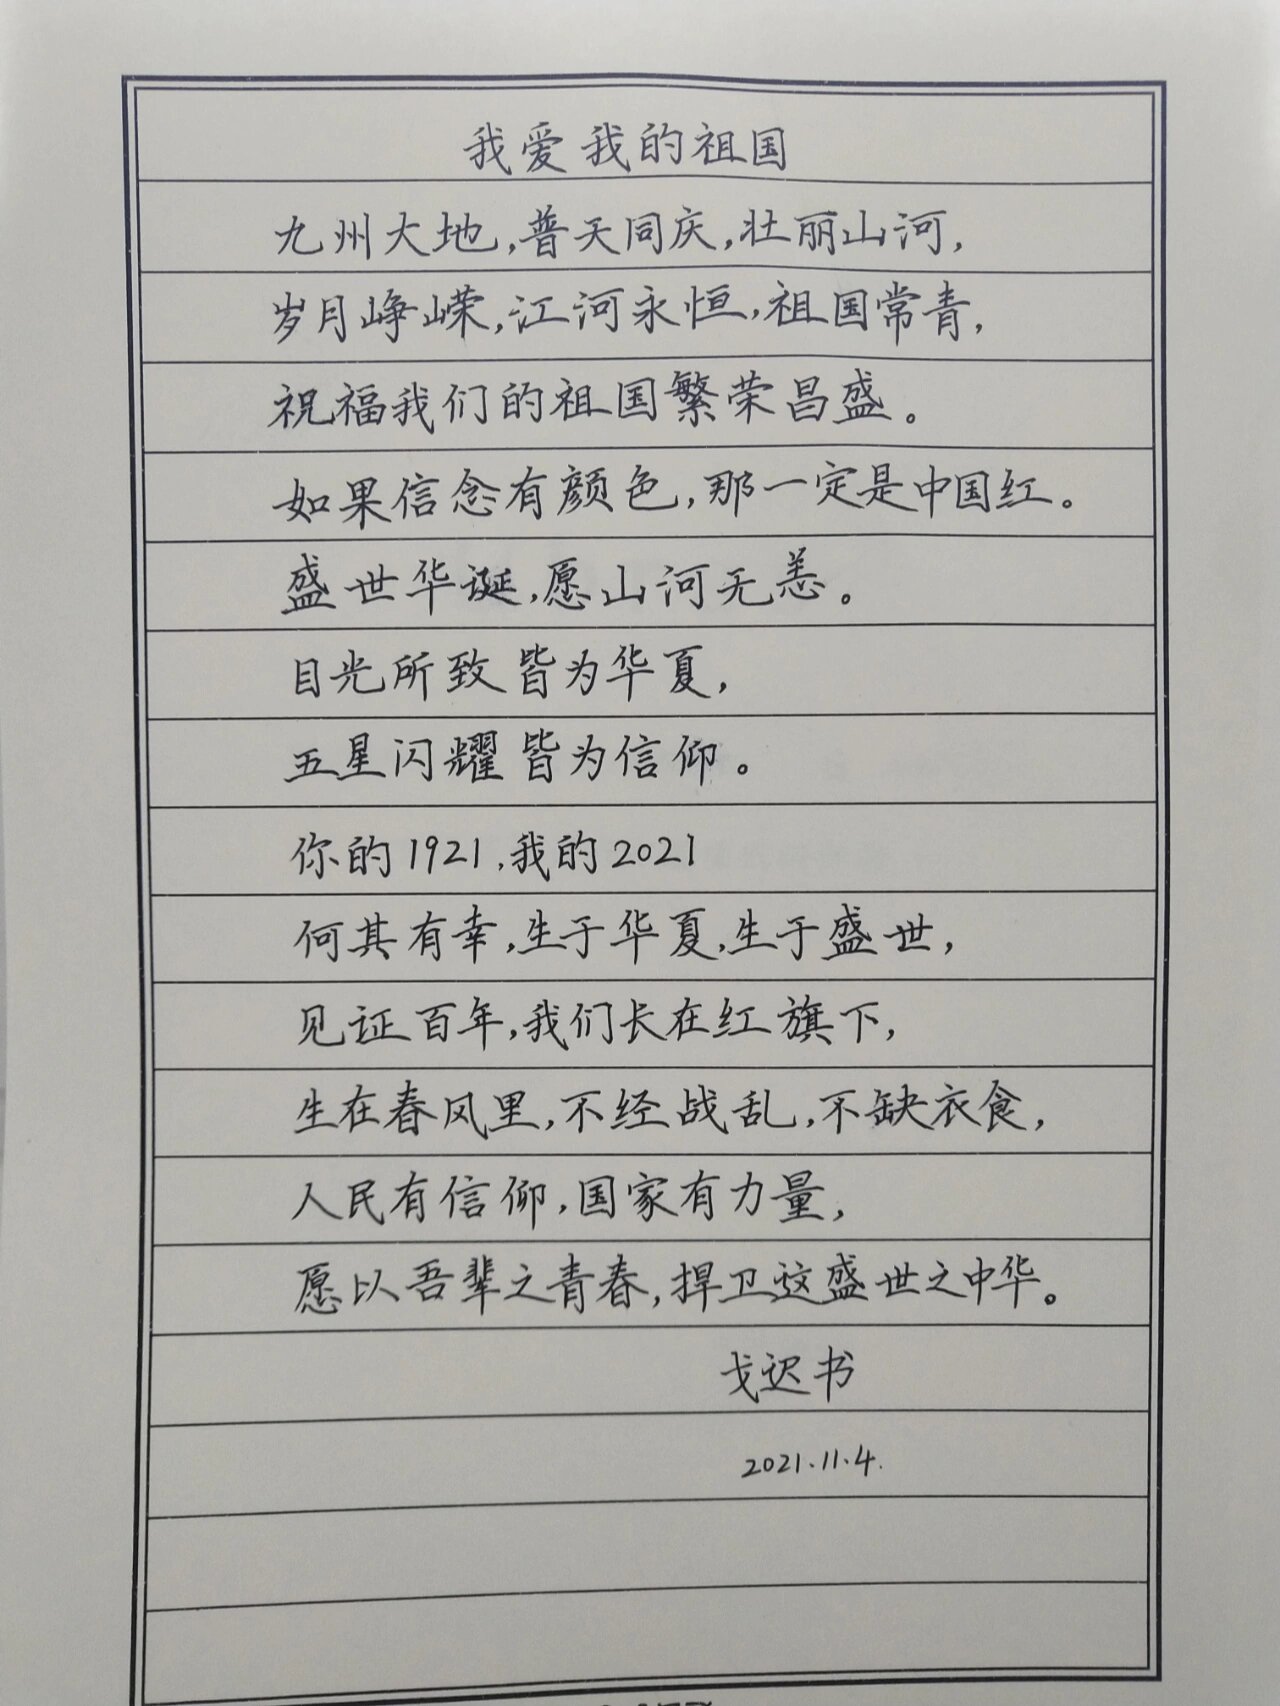 我爱我的祖国
九州大地,普天同庆,壮丽山河,
岁月峥嵘,江河永恒,祖国常青,
祝福我们的祖国繁荣昌盛。
如果信念有颜色,那一定是中国红。
盛世华诞,愿山河无恙。
目光所致皆为华夏,
五星闪耀皆为信仰。
你的1921,我的2021
何其有幸,生于华夏,生于盛世,
见证百年,我们长在红旗下,
生在春风里,不经战乱,不缺衣食,
人民有信仰,国家有力量,
愿以吾辈之青春,捍卫这盛世之中华。
戈迟书
2021.11.4.